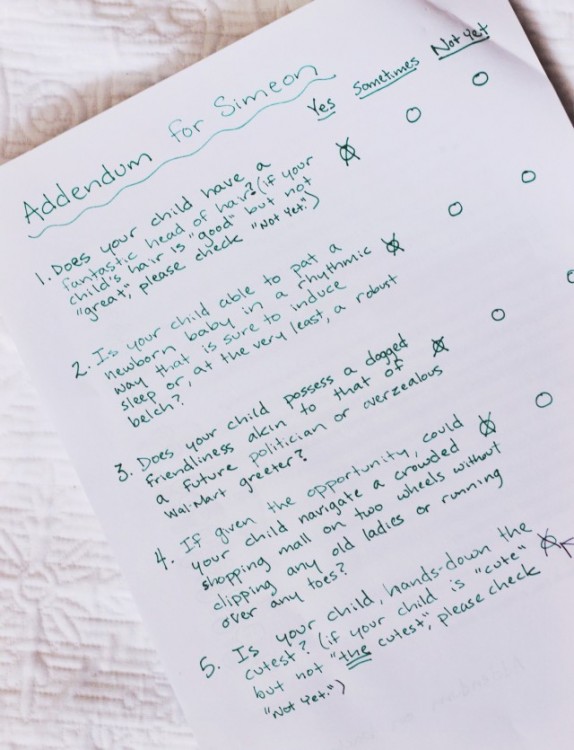 Addendum for Simeon
Yes Sometimes Not yet
1. Does your child have a
fantastic head of hair? (if your
child's hair is "good" but not
"great", please check "Not yet.")
2. Is your child able to pat a
newborn baby in a rhythmic
way that is sure to induce
sleep or, at the very least, a robust
belch?
3. Does your child possess a dogged
friendliness akin to that of
a future politician or overzealous
Wal-Mart greeter?
4. If given the opportunity, could
your child navigate a crowded
shopping mall on two wheels without
clipping any old ladies or running
over any toes?
5. Is your child, hands-down the
cutest? (if your child is "cute"
but not "the cutest", please check
"Not yet.")